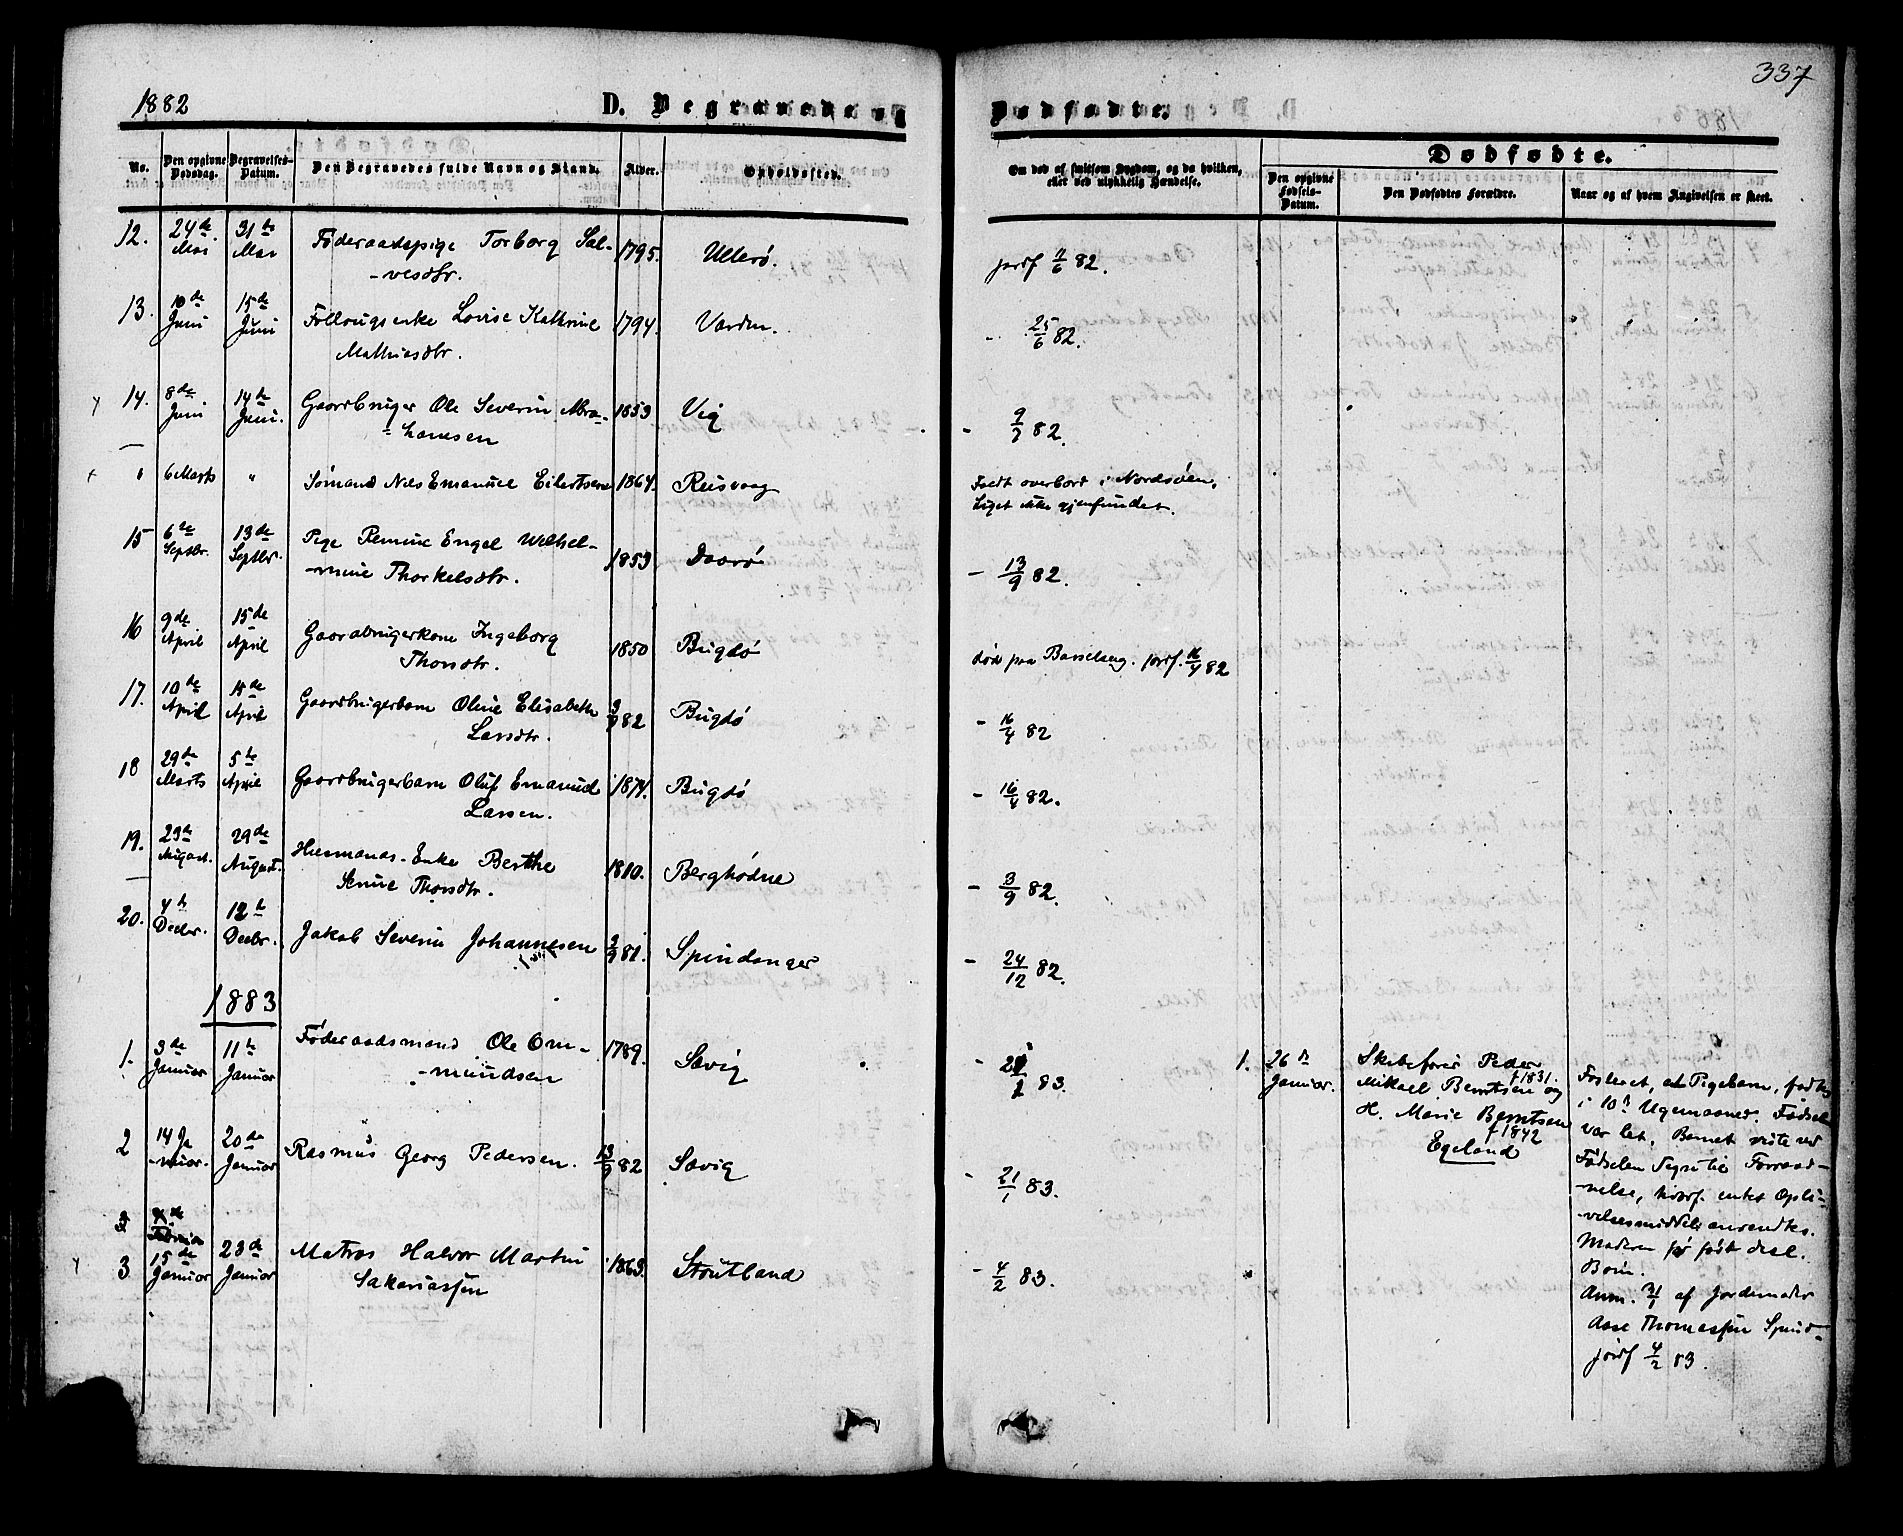 1882
337
D. Begravede og Dødfødte.
No.
Den opgivne Dødsdag.
Begravelses-Datum.
Den Begravedes fulde Navn og Stand.
Alder.
Opholdssted.
Om død af smitsom Sygdom, og da hvilken, eller ved ulykkelig Hændelse.
Dødfødte.
Den opgivne Fødsels-Datum.
Den Dødfødtes Forældre.
Naar og af hvem Angivelsen er skeet.
12. 24de Mai 31te Mai Føderaadspige Torborg Sal-
-vesdtr. 1795. Ullerø. jordf 7/6 82.
13. 10de Juni 15de Juni Follougsenke Lovise Kathrine
Mathiasdtr. 1794. Varden. - 25/6 82.
14. 8de Juni 14de Juni. Gaardbruger Ole Severin Abra-
-hamsen 1853 Vig - 9/7 82.
" 6 Marts " Sømand Nils Emanuel Eilertsen 1864. Reisvaag Faldt overbord i Nordsøen,
Liget ikke gjenfundet.
15 6te Septbr. 13de Septbr. Pige Pemine Engel Wilhel-
-mine Thorkelsdtr. 1853 Daarø - 13/9 82.
16 9de April 15de April Gaardbrugerkone Ingeborg
Thorsdtr. 1850 Bugdø død paa Basselberg. jordf. 16/4 82
17. 10de April 15de April Gaardbrugerbarn Oline Elisabeth
Larsdtr. 82 Bugdø - 16/4 82
18 29de Marts 5te April Gaardbrugerbarn Oluf Emanuel
Larsen. 1874. Bugdø - 16/4 82.
19. 23de August. 29de August. Huusmands-Enke Berthe
Serine Thorsdtr. 1810. Berghødne - 3/9 82.
20. 4de Decbr. 12te Decbr. Jakob Severin Johannesen 2/9 81. Spindanger - 24/12 82.
1883
1. 3de Januar 11te Januar Føderaadsmand Ole Om-
-mundsen 1789. Sævig - 83.
2 14 Ja-
-nuar. 20de Januar Rasmus Georg Pedersen. 82 Sævig - 21/1 83.
3 15de Januar 23de Januar Matros Halvor Martin
Sakariassen 1863. Stoutland - 4/2 83.
1. 26de Januar.
Skibsfører Peder
Mikael Berntsen f 1831. og
H. Marie Berntsen
f 1842
Egeland
Fosteret, et Pigebarn, født
i 10de Ugemaaned. Fødselen
var let. Barnet viste ved
Fødselen Tegn til Forraad-
-nelse, hvorf. intet Opli-
-velsesmiddel anvendtes.
Moderen før født
Børn.
Anm. 31/1 af Jordemoder
Aase Thomassen Spind-
jordf 4/2 83.